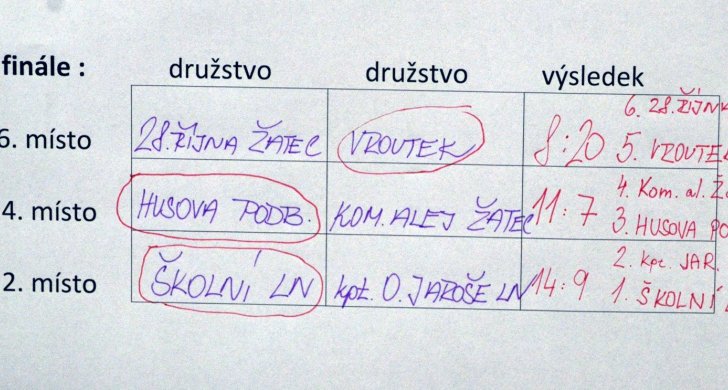 finále : družstvo družstvo výsledek
6. 28. ŘÍJN
6. místo 28. ŘÍJNA ŽATEC VROUTEK 8:20 5. VROUTE
4. Kom. al. Ž
4. místo HUSOVA PODB. KOM. ALEJ ŽATEC 11:7 3. HUSOVA PO
2. kpt. JAR.
2. místo ŠKOLNÍ LN kpt. O. JAROŠE LN 14:9 1. ŠKOLNÍ